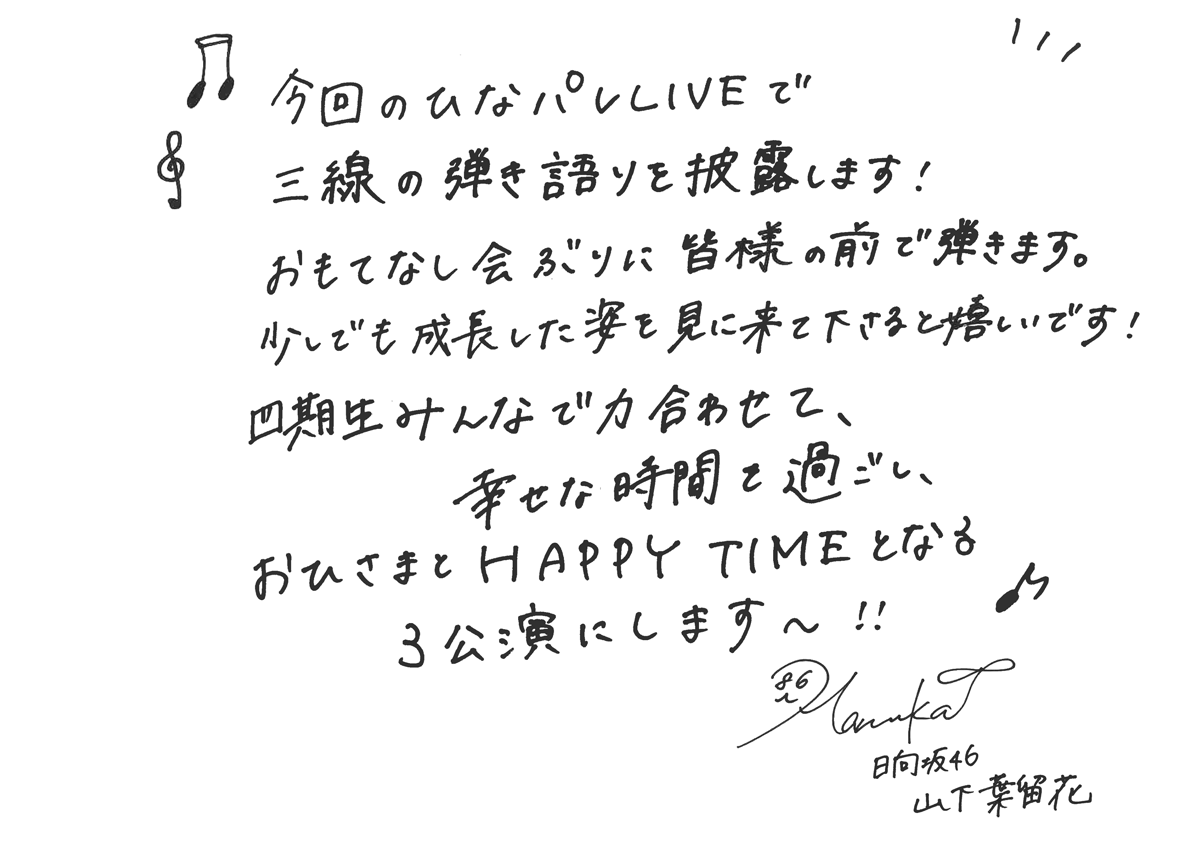 今回のひなパレLIVEで
三線の弾き語りを披露します!
おもてなし会ぶりに皆様の前で弾きます。
少しでも成長した姿を見に来て下さると嬉しいです!
四期生みんなで力合わせて、
幸せな時間を過ごし、
おひさまとHAPPY TIMEとなる
3公演にします〜!!
Haruka
日向坂46
山下葉留花